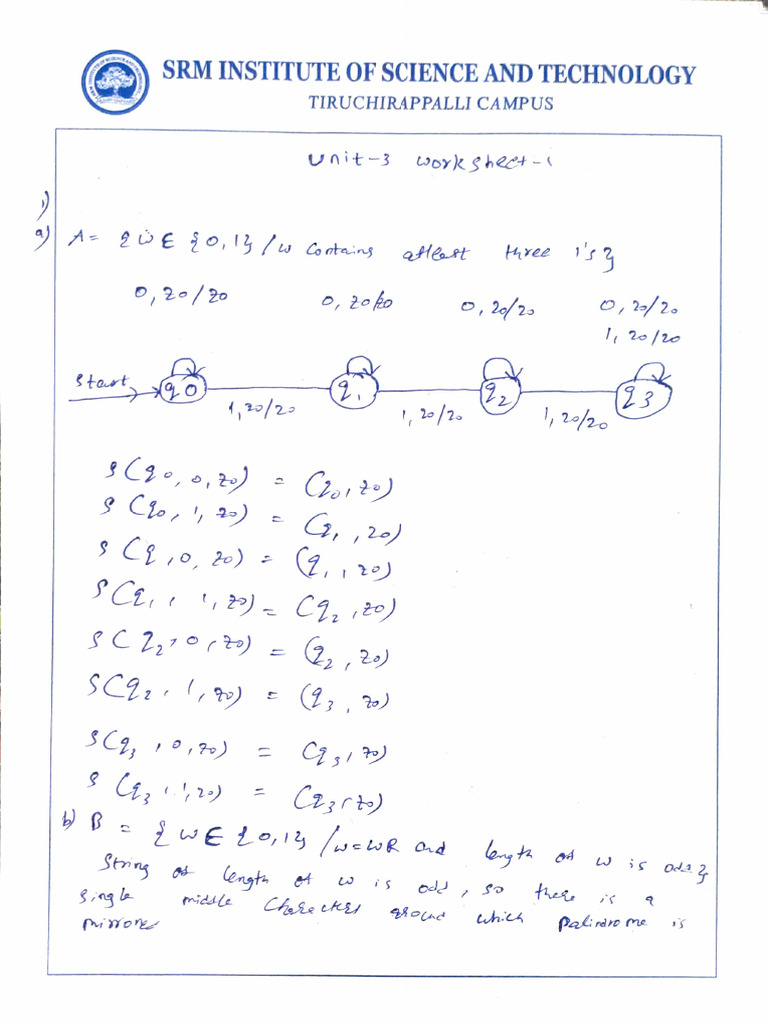 SRM INSTITUTE OF SCIENCE AND TECHNOLOGY
TIRUCHIRAPPALLI CAMPUS
Unit-3 worksheet-1
1)
a) A = { w ∈ {0,1} / w contains atleast three 1's}
0, z0/z0 0, z0/z0 0, z0/z0 0, z0/z0
1, z0/z0
Start q0 q1 q2 q3
1, z0/z0 1, z0/z0 1, z0/z0
δ(q0, 0, z0) = (q0, z0)
δ(q0, 1, z0) = (q1, z0)
δ(q1, 0, z0) = (q1, z0)
δ(q1, 1, z0) = (q2, z0)
δ(q2, 0, z0) = (q2, z0)
δ(q2, 1, z0) = (q3, z0)
δ(q3, 0, z0) = (q3, z0)
δ(q3, 1, z0) = (q3, z0)
b) B = { w ∈ {0,1} / w=wR and length of w is odd}
String of length of w is odd, so there is a
single middle around which palindrome is